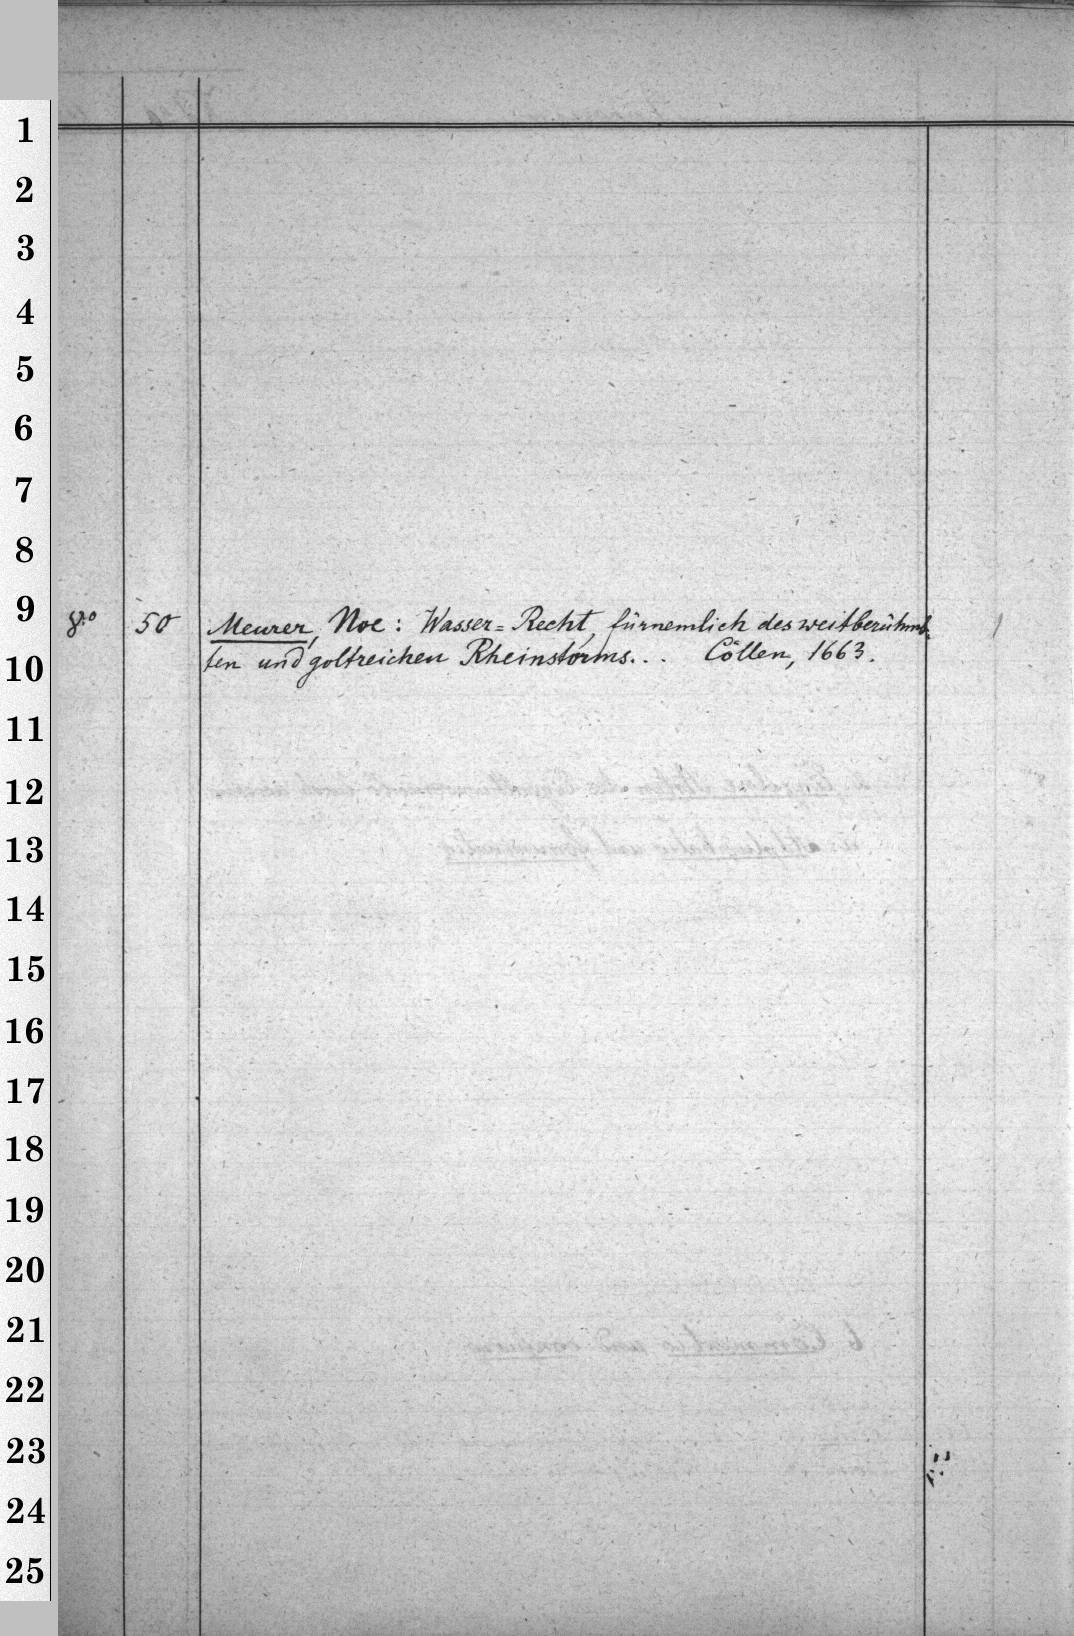 1
2
3
4
5
6
7
8
9
8vo 50 Meurer, Noe: Wasser=Recht, fürnemlich des weitberühmb- 1
10
ten und goltreichen Rheinstorms... Cöllen, 1663.
11
12
13
14
15
16
17
18
19
20
21
22
23
24
25